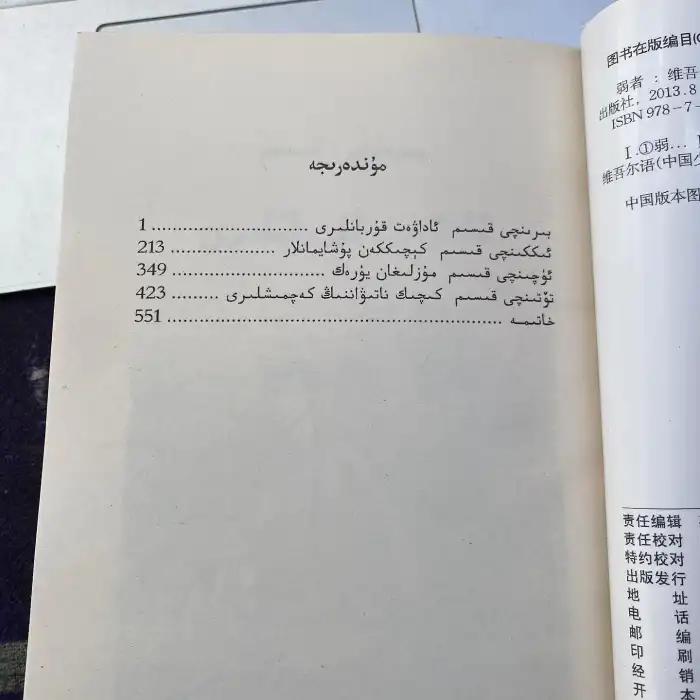 مۇندەرىجە
بىرىنچى قىسىم ئاداۋەت قۇربانلىرى ........................ 1
ئىككىنچى قىسىم كېچىككەن پۇشايمانلار .................... 213
ئۈچىنچى قىسىم مۇزلىغان يۈرەك ........................ 349
تۆتىنچى قىسىم كىچىك ناتىۋاننىڭ كەچمىشلىرى ......... 423
خاتىمە ................................................ 551
图书在版编目(C
弱者 : 维吾
出版社, 2013.8
ISBN 978-7-
Ⅰ.①弱… Ⅱ
维吾尔语(中国少
中国版本图
责任编辑
责任校对
特约校对
出版发行
地 址
电 话
邮 编
印 刷
经 销
开 本